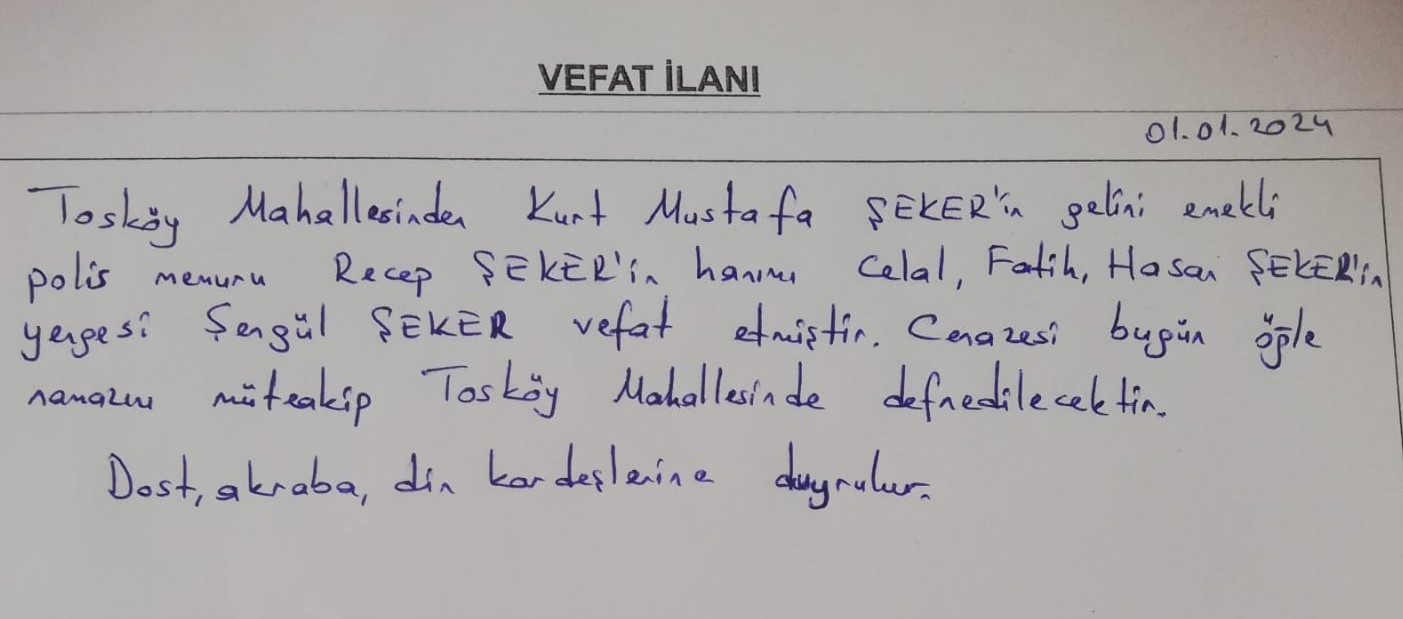 VEFAT İLANI
01.01.2024
Tosköy Mahallesinden Kurt Mustafa ŞEKER'in gelini emekli
polis memuru Recep ŞEKER'in hanımı Celal, Fatih, Hasan ŞEKER'in
yengesi Şengül ŞEKER vefat etmiştir. Cenazesi bugün öğle
namazını müteakip Tosköy Mahallesinde defnedilecektir.
Dost, akraba, din kardeşlerine duyrulur.